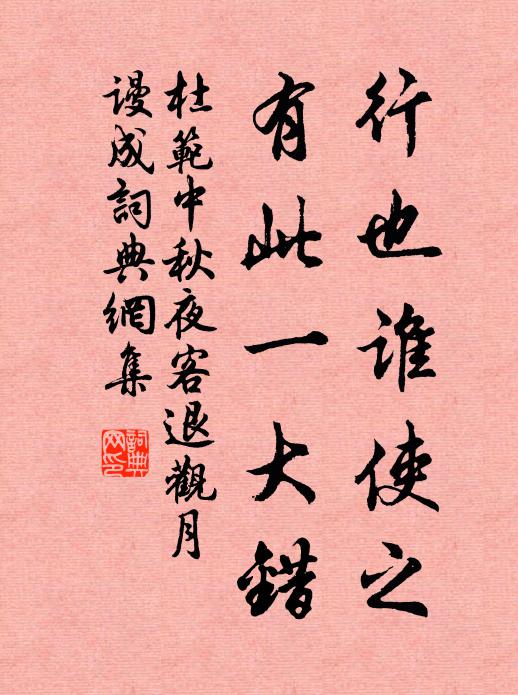 行也誰使之
有此一大錯
杜範中秋夜客退觀月
謾成詞典網集
詞典
网印